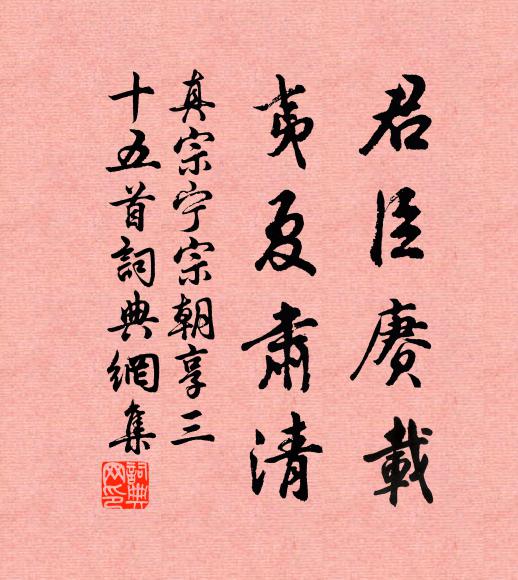 君臣賡載
夷夏肅清
真宗宁宗朝享三
十五首詞典網集
詞典网印